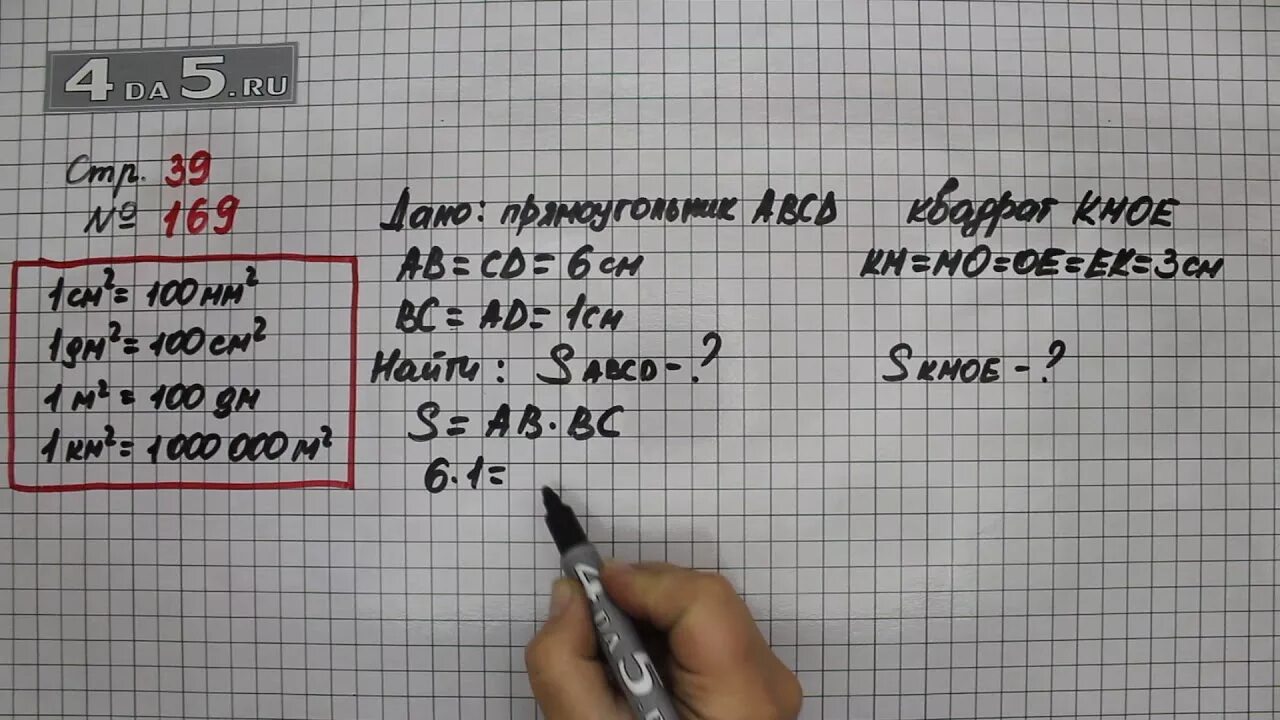 4 DA 5.RU
Стр. 39
№ 169
1 см² = 100 мм²
1 дм² = 100 см²
1 м² = 100 дм
1 км² = 1 000 000 м²
Дано: прямоугольник ABCD
AB = CD = 6 см
BC = AD = 1 см
Найти: S ABCD - ?
S = AB · BC
6 · 1 =
квадрат КМОЕ
КМ = МО = ОЕ = ЕК = 3 см
S КМОЕ - ?
4 DA 5